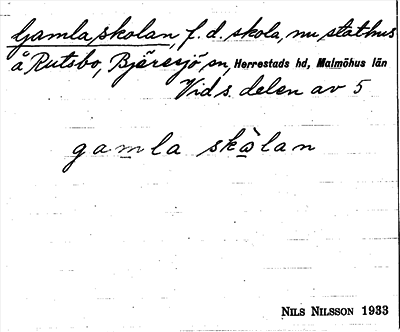 Gamla skolan, f. d. skola, nu stathus
å Rutsbo, Bjäresjö sn, Herrestads hd, Malmöhus län
Vid s. delen av 5
gamla skòlan
NILS NILSSON 1933